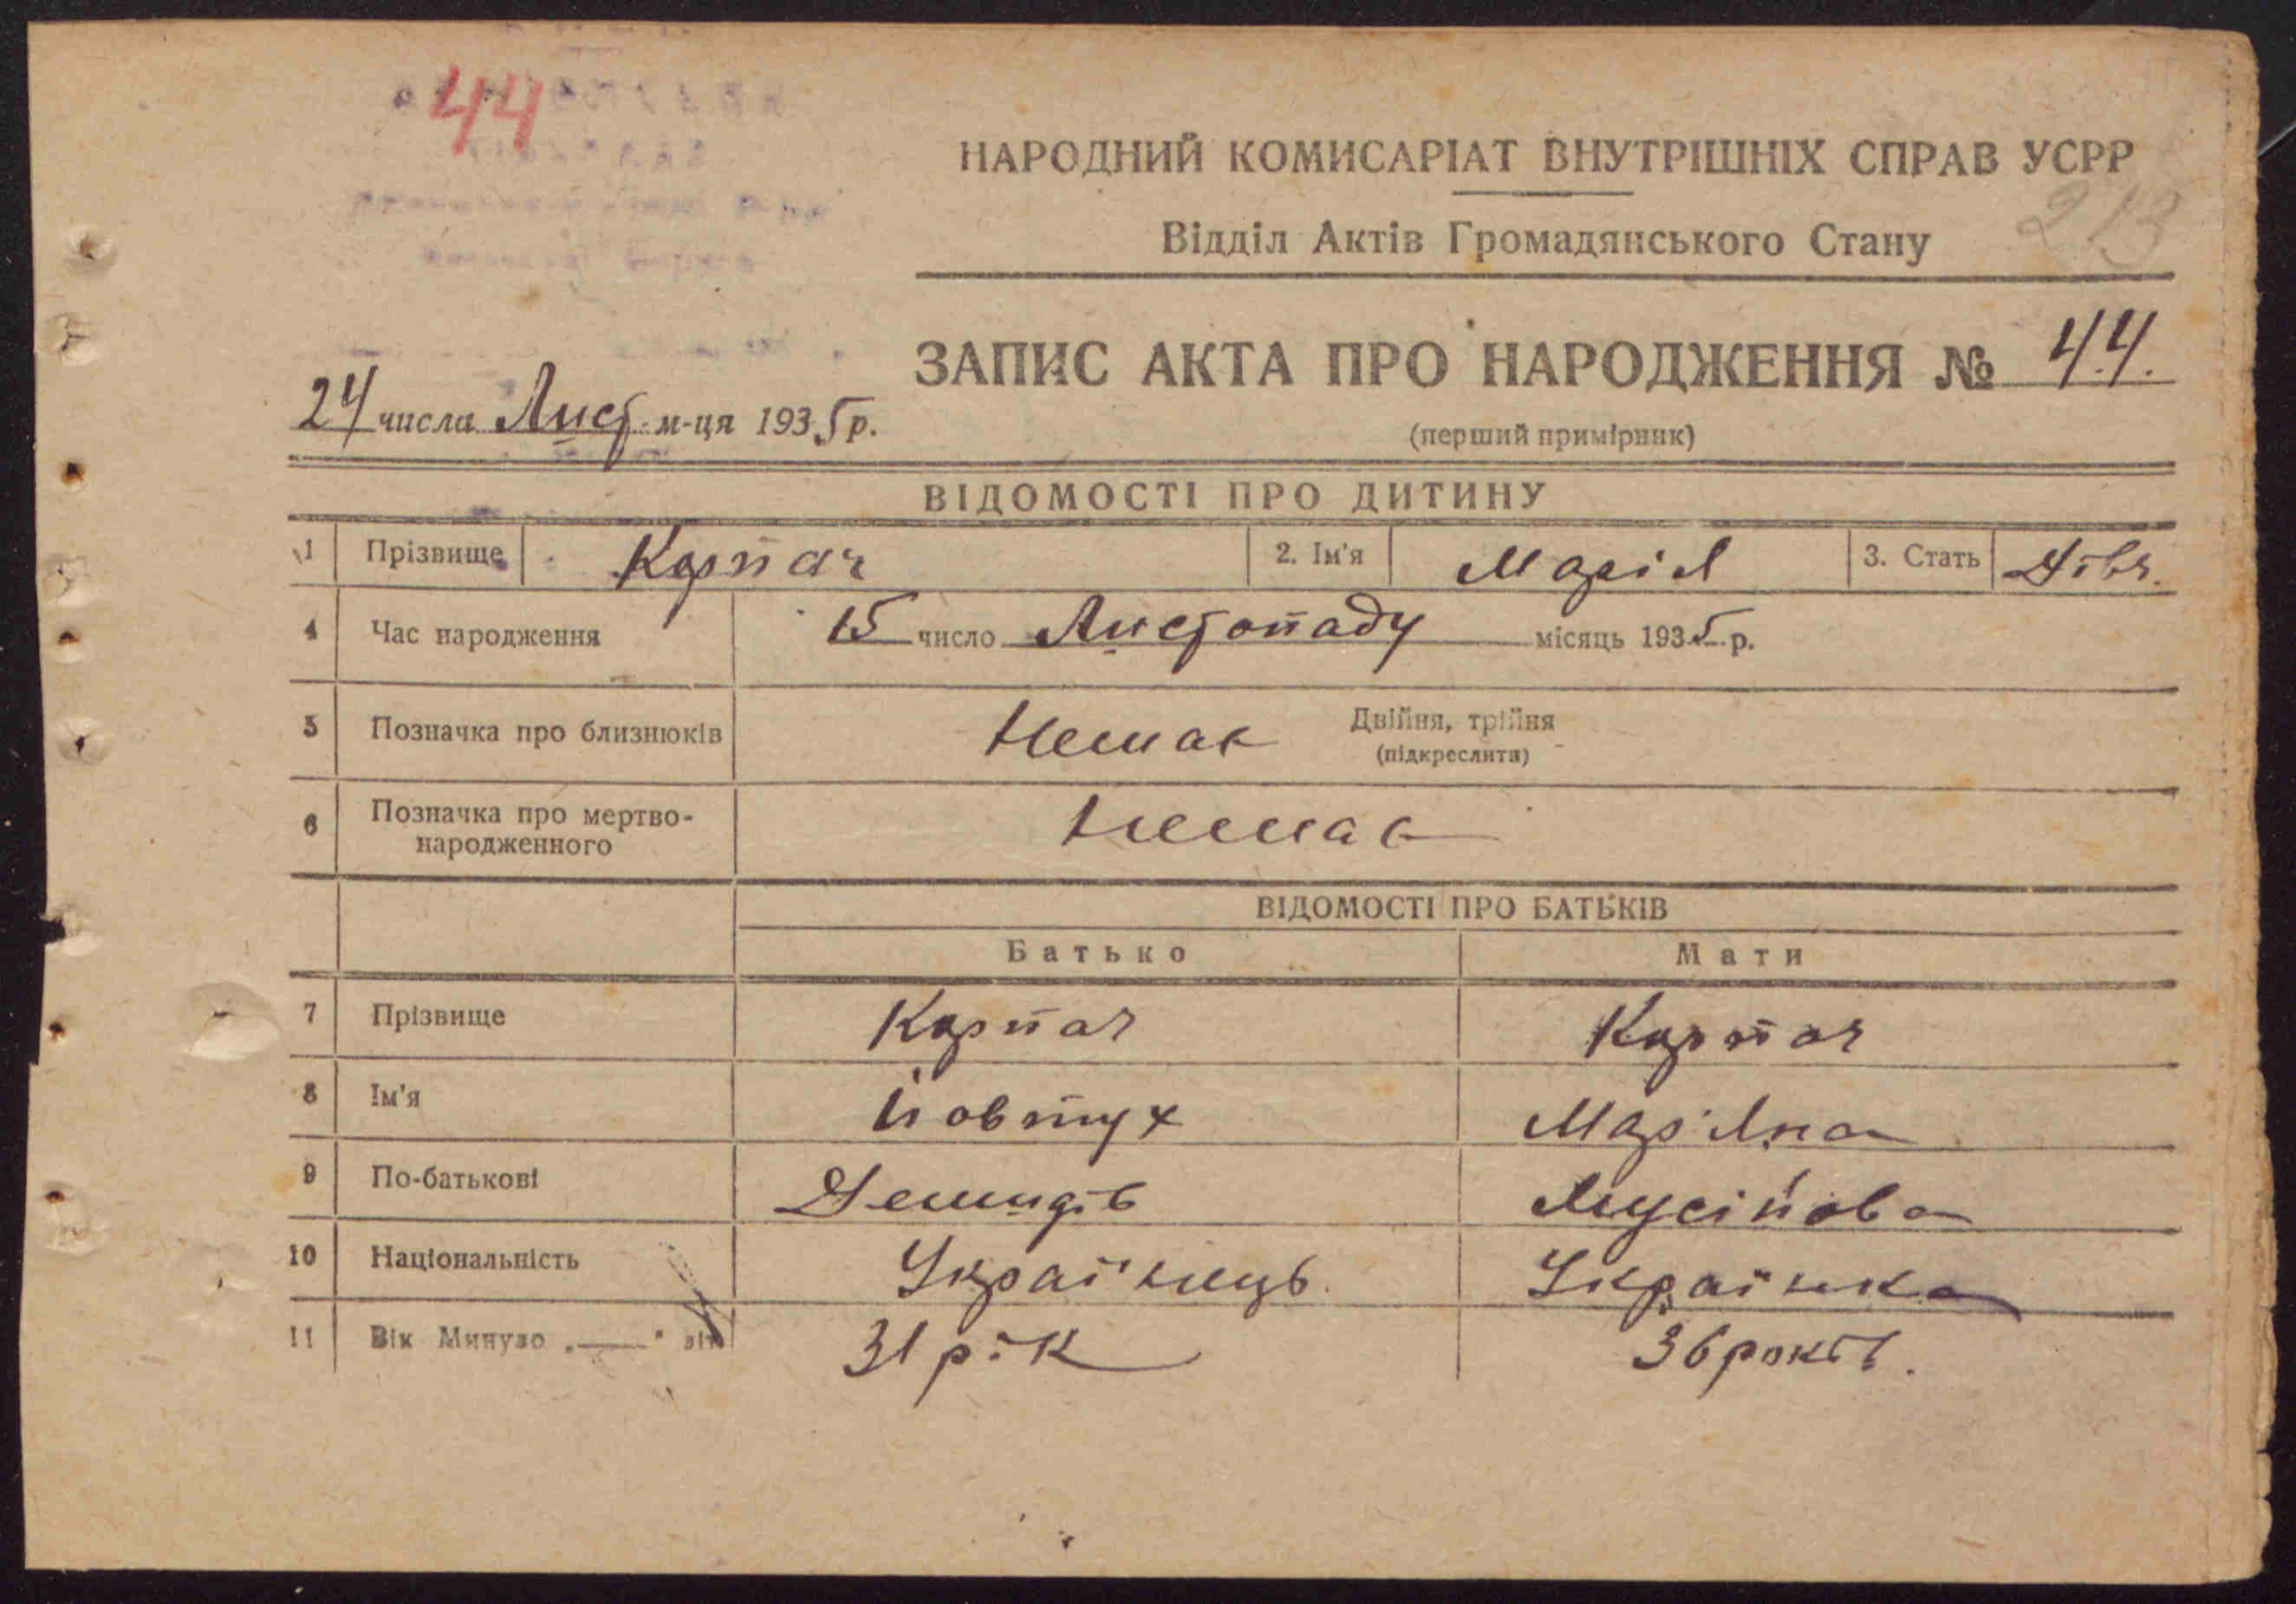 44
НАРОДНИЙ КОМИСАРІАТ ВНУТРІШНІХ СПРАВ УСРР
213
Відділ Актів Громадянського Стану
ЗАПИС АКТА ПРО НАРОДЖЕННЯ № 44.
24 числа Лист. м-ця 1935 р.
(перший примірник)
ВІДОМОСТІ ПРО ДИТИНУ
1 Прізвище Карпач 2. Ім'я Марія 3. Стать Дівч.
4 Час народження 15 число Листопаду місяць 1935 р.
5 Позначка про близнюків Немає Двійня, трійня
(підкреслити)
6 Позначка про мертво-
народженного Немає
ВІДОМОСТІ ПРО БАТЬКІВ
Батько Мати
7 Прізвище Карпач Карпач
8 Ім'я Йовтух Мар'яна
9 По-батькові Демидів Мусійова
10 Національність Українець Українка
11 Вік Минуло „—" літ 31 рік 36 років.